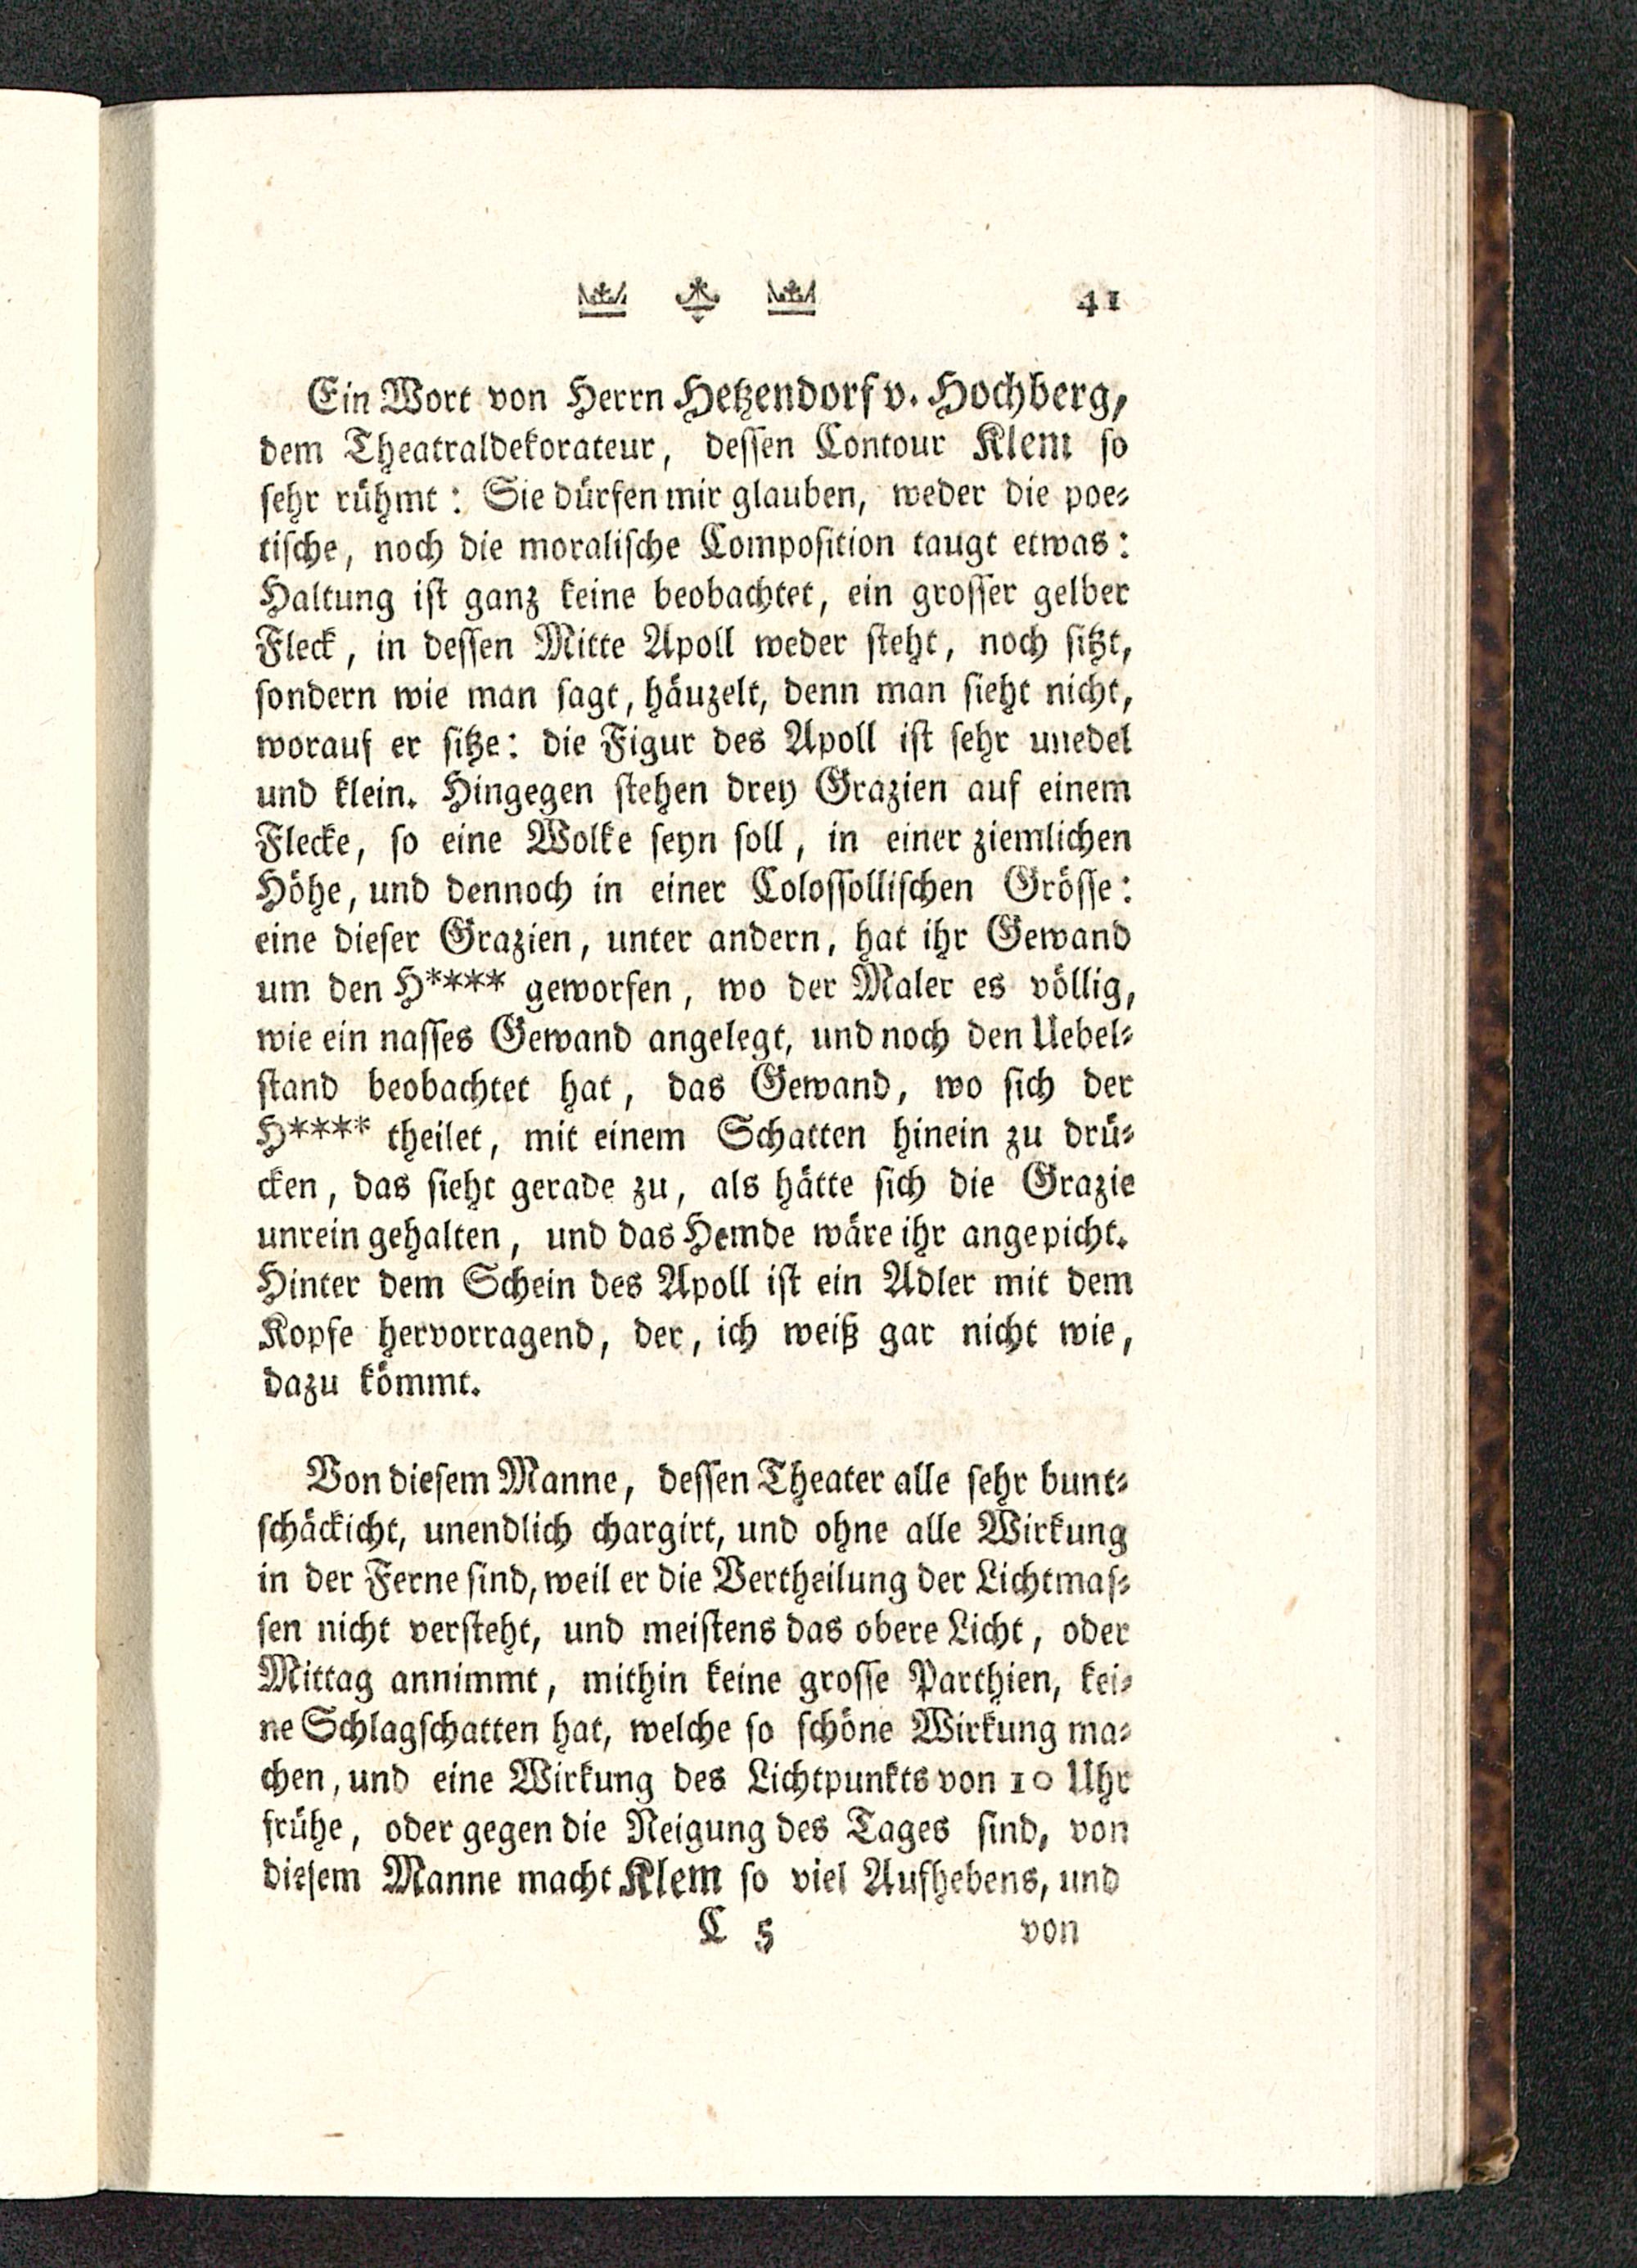 41
Ein Wort von Herrn Hetzendorf v. Hochberg,
dem Theatraldekorateur, dessen Contour Klem so
sehr rühmt: Sie dürfen mir glauben, weder die poe⸗
tische, noch die moralische Composition taugt etwas:
Haltung ist ganz keine beobachtet, ein grosser gelber
Fleck, in dessen Mitte Apoll weder steht, noch sitzt,
sondern wie man sagt, häuzelt, denn man sieht nicht,
worauf er sitze: die Figur des Apoll ist sehr unedel
und klein. Hingegen stehen drey Grazien auf einem
Flecke, so eine Wolke seyn soll, in einer ziemlichen
Höhe, und dennoch in einer Colossollischen Grösse:
eine dieser Grazien, unter andern, hat ihr Gewand
um den H**** geworfen, wo der Maler es völlig,
wie ein nasses Gewand angelegt, und noch den Uebel⸗
stand beobachtet hat, das Gewand, wo sich der
H**** theilet, mit einem Schatten hinein zu drü⸗
cken, das sieht gerade zu, als hätte sich die Grazie
unrein gehalten, und das Hemde wäre ihr angepicht.
Hinter dem Schein des Apoll ist ein Adler mit dem
Kopfe hervorragend, der, ich weiß gar nicht wie,
dazu kömmt.
Von diesem Manne, dessen Theater alle sehr bunt⸗
schäckicht, unendlich chargirt, und ohne alle Wirkung
in der Ferne sind, weil er die Vertheilung der Lichtmas⸗
sen nicht versteht, und meistens das obere Licht, oder
Mittag annimmt, mithin keine grosse Parthien, kei⸗
ne Schlagschatten hat, welche so schöne Wirkung ma⸗
chen, und eine Wirkung des Lichtpunkts von 10 Uhr
frühe, oder gegen die Neigung des Tages sind, von
diesem Manne macht Klem so viel Aufhebens, und
C 5 von